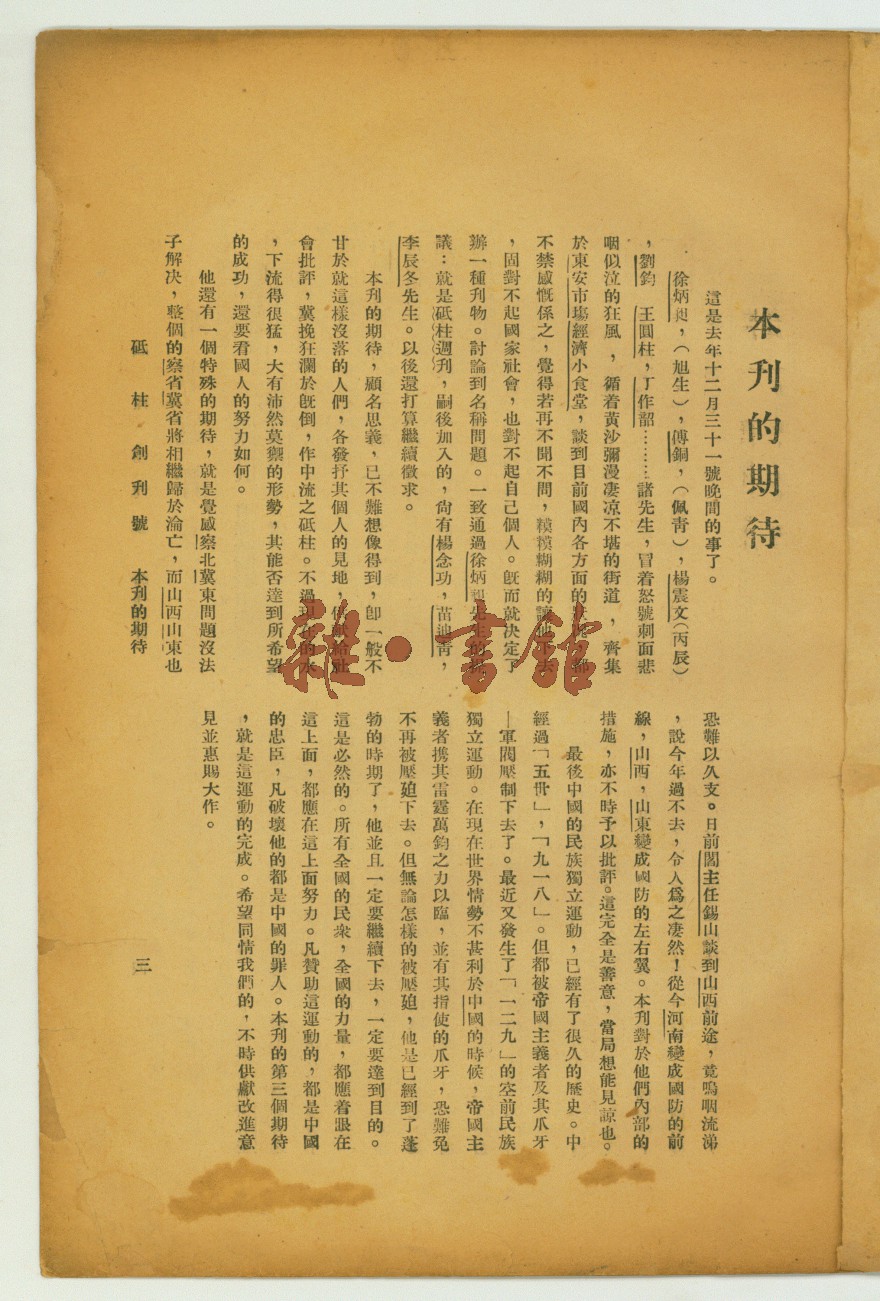 本刋的期待
這是去年十二月三十一號晚間的事了。
徐炳昶，（旭生），傅銅，（佩青），楊震文（丙辰）
，劉鈞 王圓柱，丁作韶………諸先生，冒着怒號刺面悲
咽似泣的狂風，循着黃沙彌漫凄凉不堪的街道，齊集
於東安市塲經濟小食堂，談到目前國內各方面的，都
不禁感慨係之，覺得若再不聞不問，糢糢糊糊的讓他下去
，固對不起國家社會，也對不起自己個人。旣而就决定了
辦一種刋物。討論到名稱問題。一致通過徐炳昶先生的提
議：就是砥柱週刋，嗣後加入的，尙有楊念功，苗迪青，
李辰冬先生。以後還打算繼續徵求。
本刋的期待，顧名思義，已不難想像得到，卽一般不
甘於就這樣沒落的人們，各發抒其個人的見地，供獻給社
會批評，冀挽狂瀾於旣倒，作中流之砥柱。不過現在的水
，下流得很猛，大有沛然莫禦的形勢，其能否達到所希望
的成功，還要看國人的努力如何。
他還有一個特殊的期待，就是覺感察北冀東問題沒法
子解决，整個的察省冀省將相繼歸於淪亡，而山西山東也
恐難以久支。日前閻主任錫山談到山西前途，竟嗚咽流涕
，說今年過不去，令人爲之凄然！從今河南變成國防的前
線，山西，山東變成國防的左右翼。本刋對於他們內部的
措施，亦不時予以批評。這完全是善意，當局想能見諒也。
最後中國的民族獨立運動，已經有了很久的歷史。中
經過「五卅」，「九一八」。但都被帝國主義者及其爪牙
—軍閥壓制下去了。最近又發生了「一二九」的空前民族
獨立運動。在現在世界情勢不甚利於中國的時候，帝國主
義者携其雷霆萬鈞之力以臨，並有其指使的爪牙，恐難免
不再被壓廹下去。但無論怎樣的被壓廹，他是已經到了蓬
勃的時期了，他並且一定要繼續下去，一定要達到目的。
這是必然的。所有全國的民衆，全國的力量，都應着眼在
這上面，都應在這上面努力。凡贊助這運動的，都是中國
的忠臣，凡破壞他的都是中國的罪人。本刋的第三個期待
，就是這運動的完成。希望同情我們的，不時供獻改進意
見並惠賜大作。
砥柱創刋號 本刋的期待 三
雜·書館